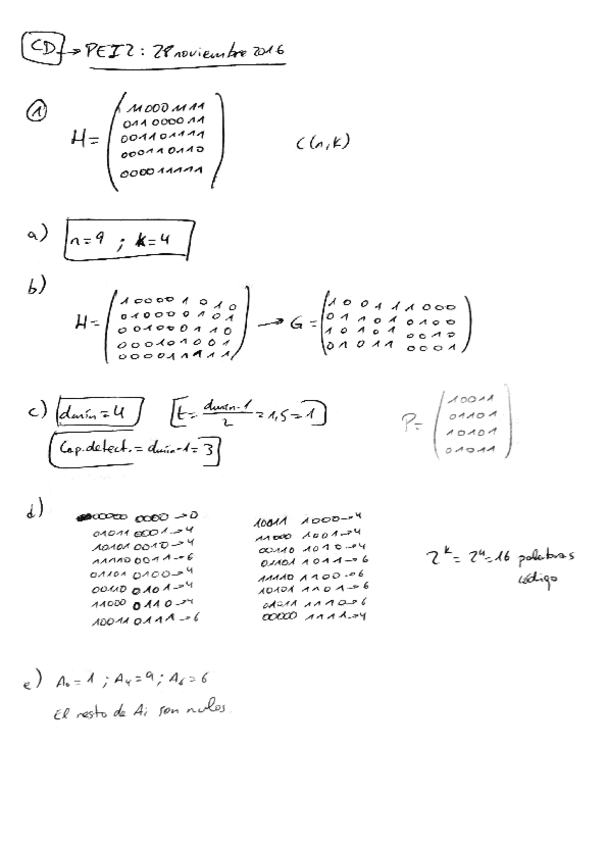 CD → PEI2: 28 noviembre 2016
①
H= 110001111
011000011
001101111
000110110
000011111
C(n,k)
a) n=9 ; k=4
b)
H= 100001010
010000101
001000110
000101001
000011111
→ G= 100111000
011010100
101010010
010110001
c) dmín=4 [t= dmín-1/2 =1,5=1]
Cap.detect.=dmín-1=3
P= 10011
01101
10101
01011
d)
00000 0000→0
01011 0001→4
10101 0010→4
11110 0011→6
01101 0100→4
00110 0101→4
11000 0110→4
10011 0111→6
10011 1000→4
11000 1001→4
00110 1010→4
01101 1011→6
11110 1100→6
10101 1101→6
01011 1110→6
00000 1111→4
2^k=2^4=16 palabras
código
e) A₀=1 ; A₄=9 ; A₆=6
El resto de Ai son nulos.